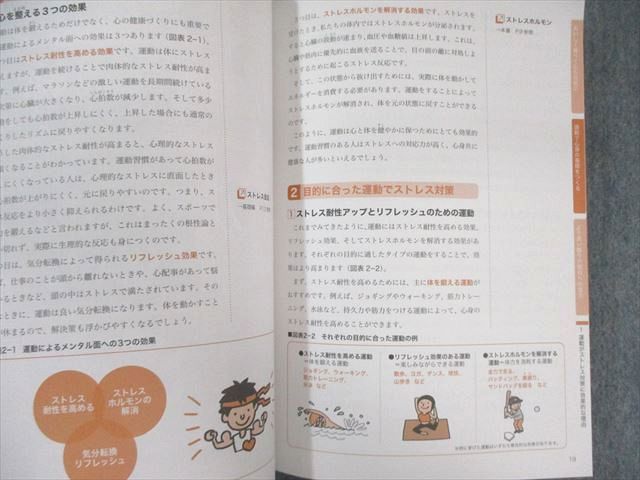 心を整える3つの効果
動は体を鍛えるためだけでなく、心の健康づくりにも重要で
運動によるメンタル面への効果は3つあります(図表2-1)。
つ目はストレス耐性を高める効果です。運動は体にストレス
えますが、運動を続けることで肉体的なストレス耐性が高ま
す。例えば、マラソンなどの激しい運動を長期間続けている
次第に心臓が大きくなり、心拍数が減少します。そして多少
動をしても心拍数が上昇しにくく、上昇した場合にも通常の
りしたリズムに戻りやすくなります。
した肉体的なストレス耐性が高まると、心理的なストレス
強くなることがわかっています。運動習慣があって心拍数が
にくくなっている人は、心理的なストレスに直面したとき
拍数が上がりにくく、元に戻りやすいのです。つまり、ス
反応をより小さく抑えられるわけです。よく、スポーツで
を鍛えるなどと言われますが、これはまったくの根性論と
切れず、実際に生理的な反応も身につくのです。
つ目は、気分転換によって得られるリフレッシュ効果です。
ば、仕事のことが頭から離れないときや、心配事があって悩
るときなど、頭の中はストレスで満たされています。そ
ときに、運動は良い気分転換になります。体を動かすこと
が休まるので、解決策も浮かびやすくなるでしょう。
ストレス反応
→基礎編
表2-1 運動によるメンタル面への3つの効果
ストレス
耐性を高める
ストレス
ホルモンの
解消
気分転換
リフレッシュ
つ目は、ストレスホルモンを解消する効果です。ストレスを
受けたとき、私たちの体内ではストレスホルモンが分泌されます。
すると心臓の鼓動が速まり、血圧や血糖値は上昇します。これは、
心臓や筋肉に優先的に血液を送ることで、目の前の敵に対処しよ
うとするために起こるストレス反応です。
そして、この状態から抜け出すためには、実際に体を動かして
エネルギーを消費する必要があります。運動をすることによって
ストレスホルモンが解消され、体を元の状態に戻すことができる
のです。
このように、運動は心と体を健やかに保つためにとても効果的
です。運動習慣のある人はストレスへの対応力が高く、心身共に
健康な人が多いといえるでしょう。
ストレスホルモン
2 目的に合った運動でストレス対策
1 ストレス耐性アップとリフレッシュのための運動
これまでみてきたように、運動にはストレス耐性を高める効果、
リフレッシュ効果、そしてストレスホルモンを解消する効果があ
ります。それぞれの目的に適したタイプの運動をすることで、効
果はより高まります(図表2-2)。
まず、ストレス耐性を高めるためには、主に体を鍛える運動が
おすすめです。例えば、ジョギングやウォーキング、筋力トレー
ニング、水泳など、持久力や筋力をつける運動によって、心身の
ストレス耐性を高めることができます。
■図表2-2 それぞれの目的に合った運動の例
●ストレス耐性を高める運動
=体を鍛える運動
ジョギング、ウォーキング、
筋力トレーニング、
水泳 など
●リフレッシュ効果のある運動
=楽しみながらできる運動
散歩、ヨガ、ダンス、球技、
山歩き など
●ストレスホルモンを解消する
運動=体力を消耗する運動
全力で走る、
バッティング、素振り、
サンドバッグを殴る など
1 運動がストレス対策に効果的な理由
19